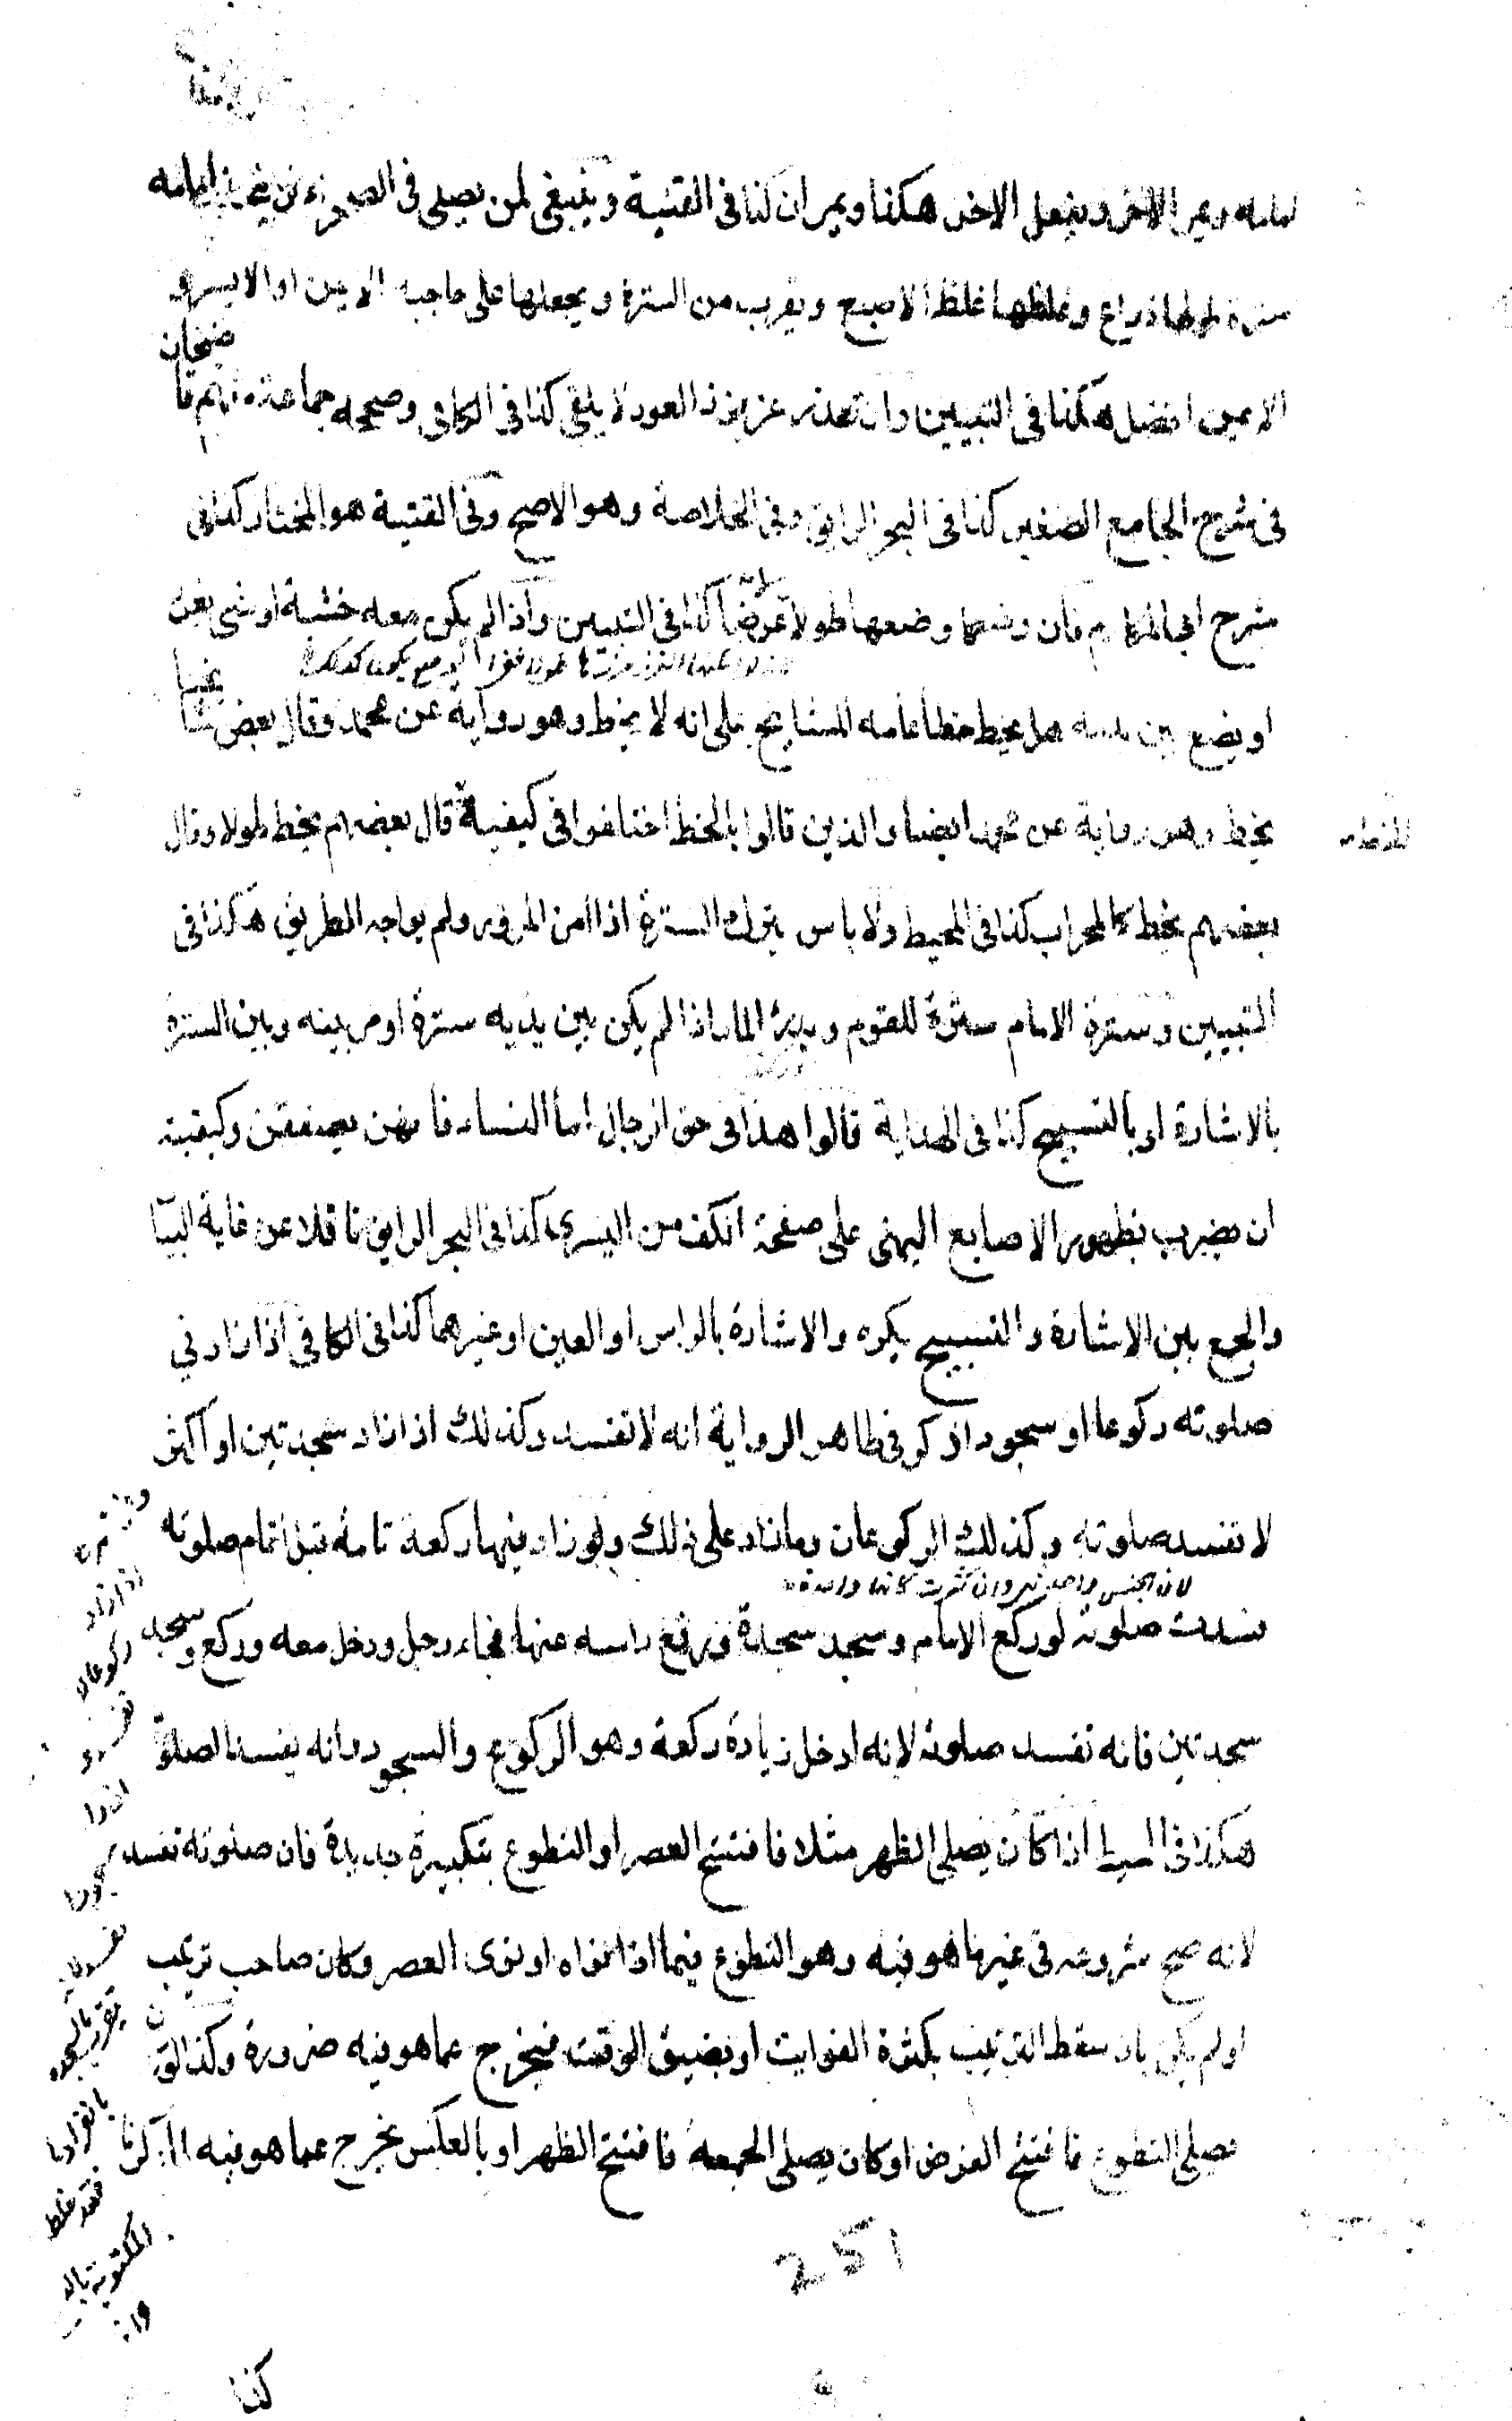 امامه ويمر الاخر ويفعل الاخر هكذا ويمران كذا فى القنية وينبغى لمن يصلى فى الصحراء ان يتخذ امامه
سترة طولها ذراع وغلظها غلظ الاصبع ويقرب من السترة ويجعلها على حاجبه الايمن او الايسر و
الايمن افضل هكذا فى التبيين وان تعذر غرز العود لا يلقى كذا فى الكافى وصححه جماعة منهم قا
ضيخان
فى شرح الجامع الصغير كذا فى البحر الرايق وفى الخلاصة وهو الاصح وفى القنية هو المختار كذا فى
شرح ابى المكارم فان وضعها وضعها طولا لا عرضا كذا فى التبيين واذا لم يكن معه خشبة او شئ يغرز
او يضع بين يديه هل يخط خطا عامه المشايخ على انه لا يخط وهو رواية عن محمد وقال بعض مشا
يخنا
يخط وهو رواية عن محمد ايضا والذين قالوا بالخط اختلفوا فى كيفيته قال بعضهم يخط طولا وقال
بعضهم يخط كالمحراب كذا فى المحيط ولا باس بترك السترة اذا امن المرور ولم يواجه الطريق هكذا فى
التبيين وسترة الامام سترة للقوم ويدرئ المار اذا لم يكن بين يديه سترة او مر بينه وبين السترة
بالاشارة او بالتسبيح كذا فى الهداية قالوا هذا فى حق الرجال اما النساء فانهن يصفقن وكيفيته
ان يضرب بظهور الاصابع اليمنى على صفحة الكف من اليسرى كذا فى البحر الرايق ناقلا عن غاية البيا
والجمع بين الاشارة والتسبيح يكره والاشارة بالراس او العين او غيرهما كذا فى الكافى اذا زاد فى
صلوته ركوعا او سجودا ذكر فى ظاهر الرواية انه لا تفسد وكذلك اذا زاد سجدتين او اكثر
لا تفسد صلوته وكذلك الركوعان وما زاد على ذلك ولو زاد فيها ركعة تامة قبل اتمام صلوته
لان الجنس واحد وان كثرت كانها واحدة
فسدت صلوته لو ركع الامام وسجد سجدة ورفع راسه عنها فجاء رجل ودخل معه وركع وسجد
سجدتين فانه تفسد صلوته لانه ادخل زيادة ركعة وهو الركوع والسجود وانه يفسد الصلوة
هكذا فى المحيط اذا كان يصلى الظهر مثلا فافتتح العصر او التطوع بتكبيرة جديدة فان صلوته تفسد
لانه صح شروعه فى غير ما هو فيه وهو التطوع فيما اذا نواه او نوى العصر وكان صاحب ترتيب
او لم يكن بان سقط الترتيب بكثرة الفوايت او بضيق الوقت فيخرج عما هو فيه ضرورة وكذا لو كان
يصلى التطوع فافتتح الفرض او كان يصلى الجمعة فافتتح الظهر او بالعكس يخرج عما هو فيه لما ذكرنا
اذا زاد
ركوعا لا
تفسد و
اذا زا
سجودا
تفسد
بالسجدة
بانفرادها
فقد غلط
251
كذا